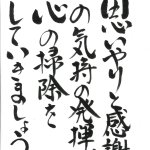 思いやりと感謝
の気持の発揮
心の掃除を
していきましょう